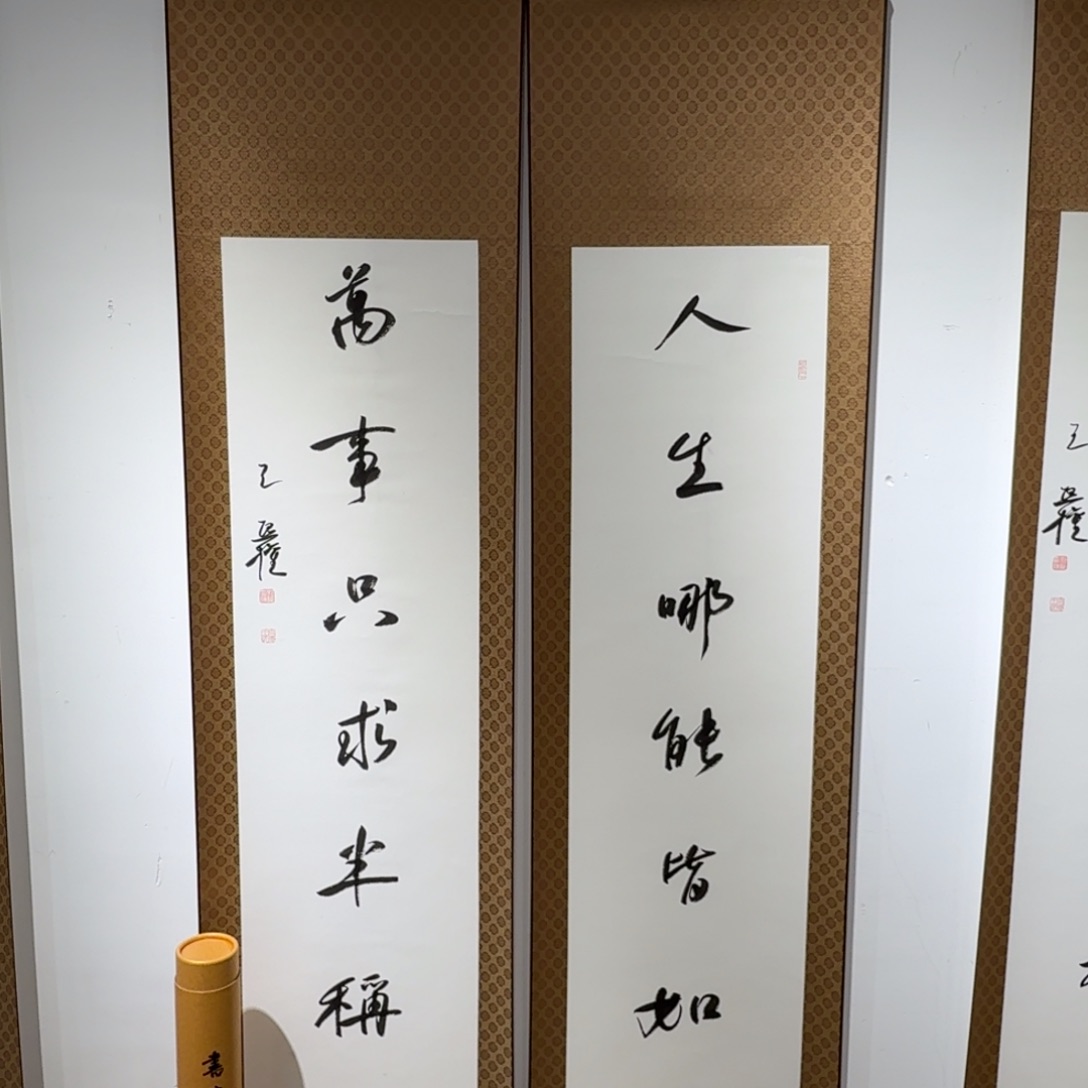 人生哪能皆如
萬事只求半稱
王
書